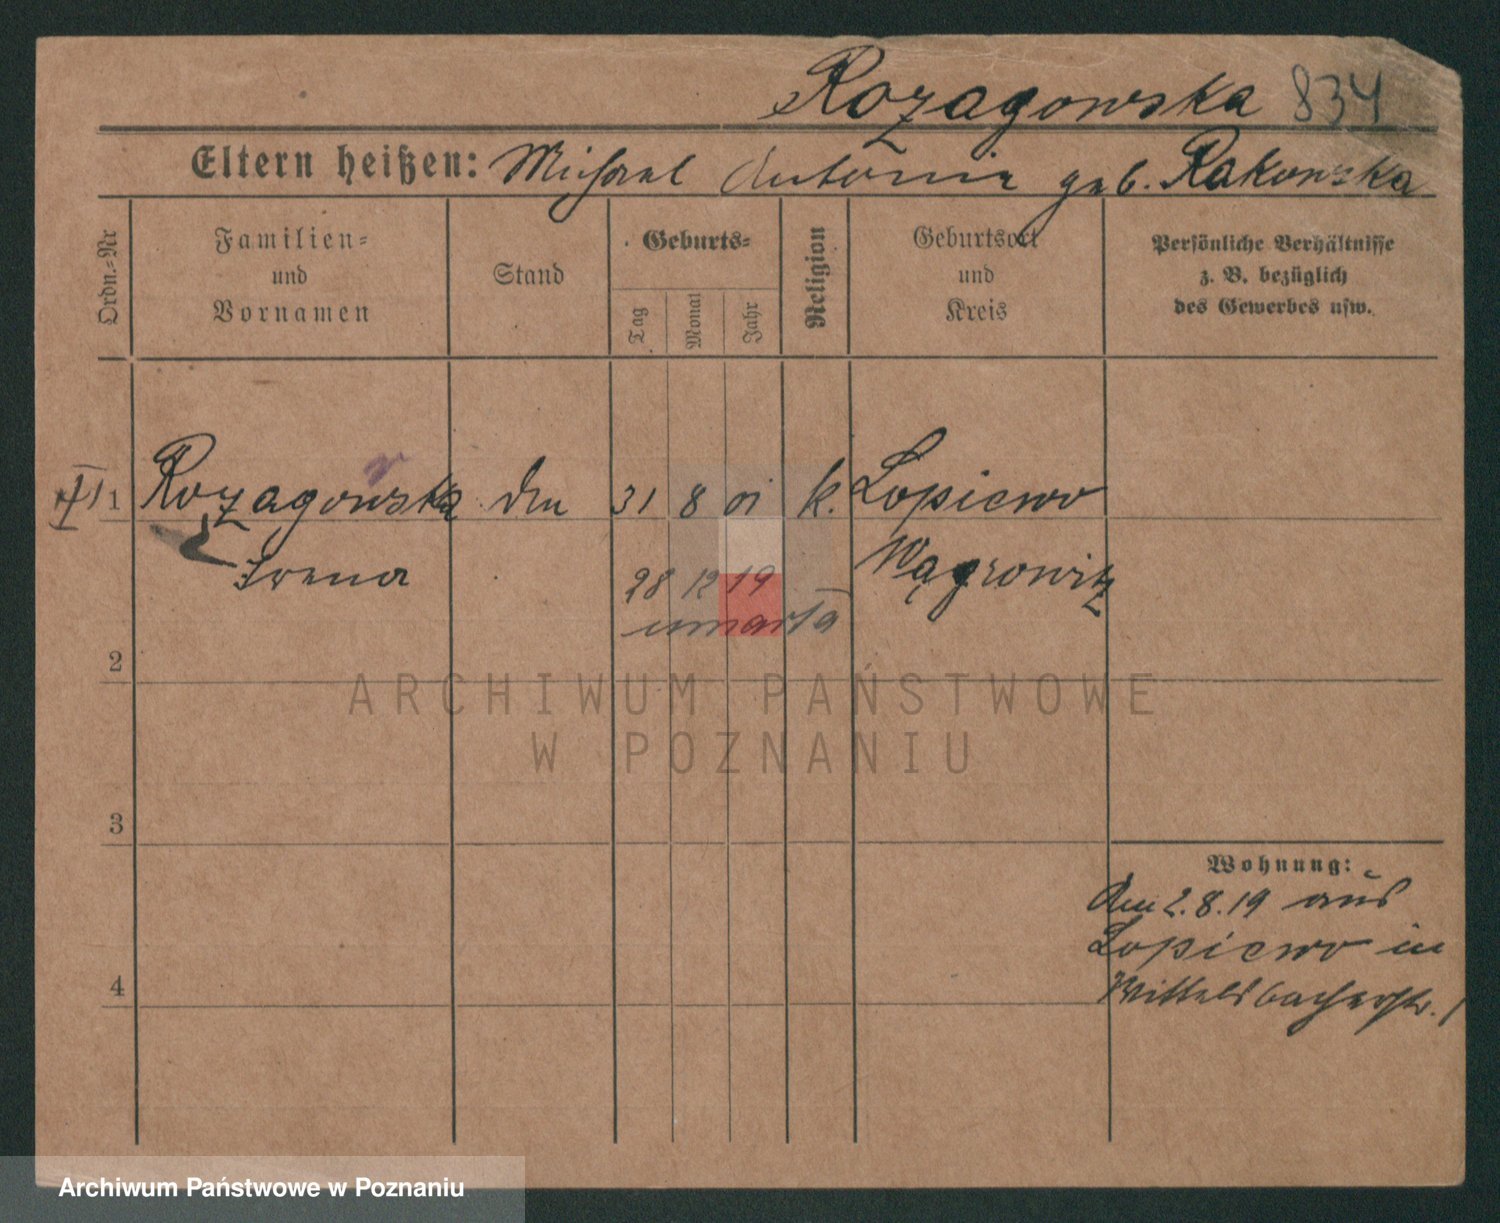 Rozagowska 834
Eltern heißen: Michael Antonie geb. Rakowska
Ordn.-Nr
Familien-
und
Vornamen
Stand
Geburts-
Tag
Monat
Jahr
Religion
Geburtsort
und
Kreis
Persönliche Verhältnisse
z. B. bezüglich
des Gewerbes usw.
1 Rozagowska 31 8 01 k. Lopiewo
Irena Wągrowitz
28 12 19
umarła
2
ARCHIWUM PAŃSTWOWE
W POZNANIU
3
Wohnung:
Am 2.8.19 aus
Lopiewo in
4 Wittelsbacherstr. 1
Archiwum Państwowe w Poznaniu